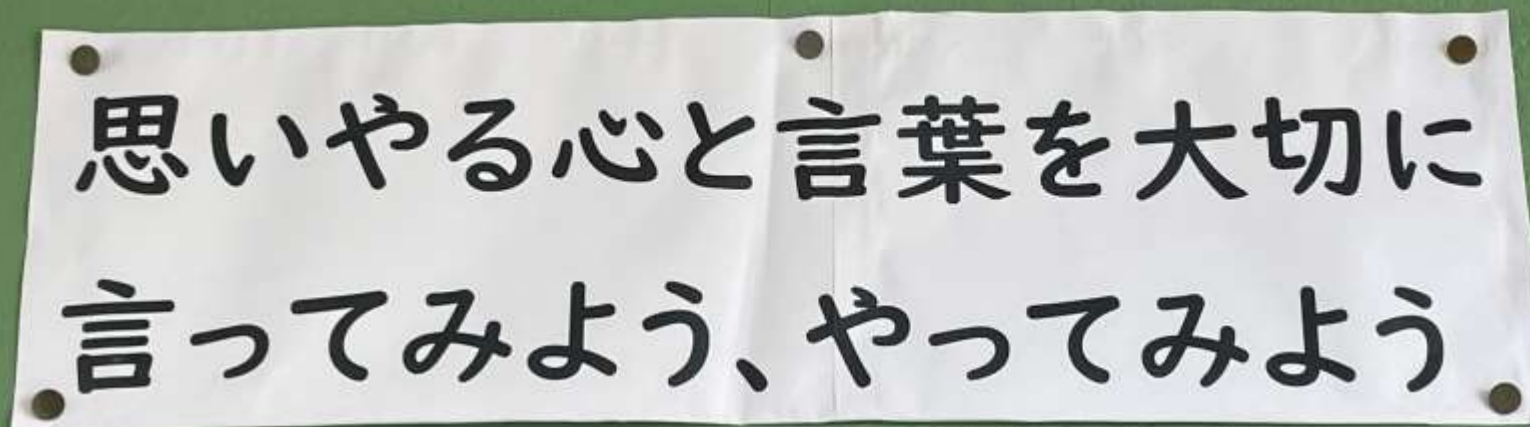 思いやる心と言葉を大切に
言ってみよう、やってみよう